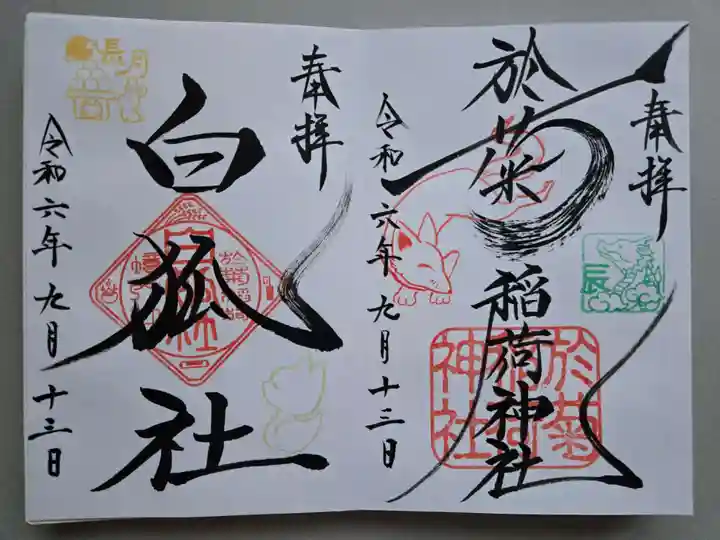 奉拝
於菊稲荷神社
令和六年九月十三日
辰
於菊
稲荷
神社
奉拝
白狐社
令和六年九月十三日
長月